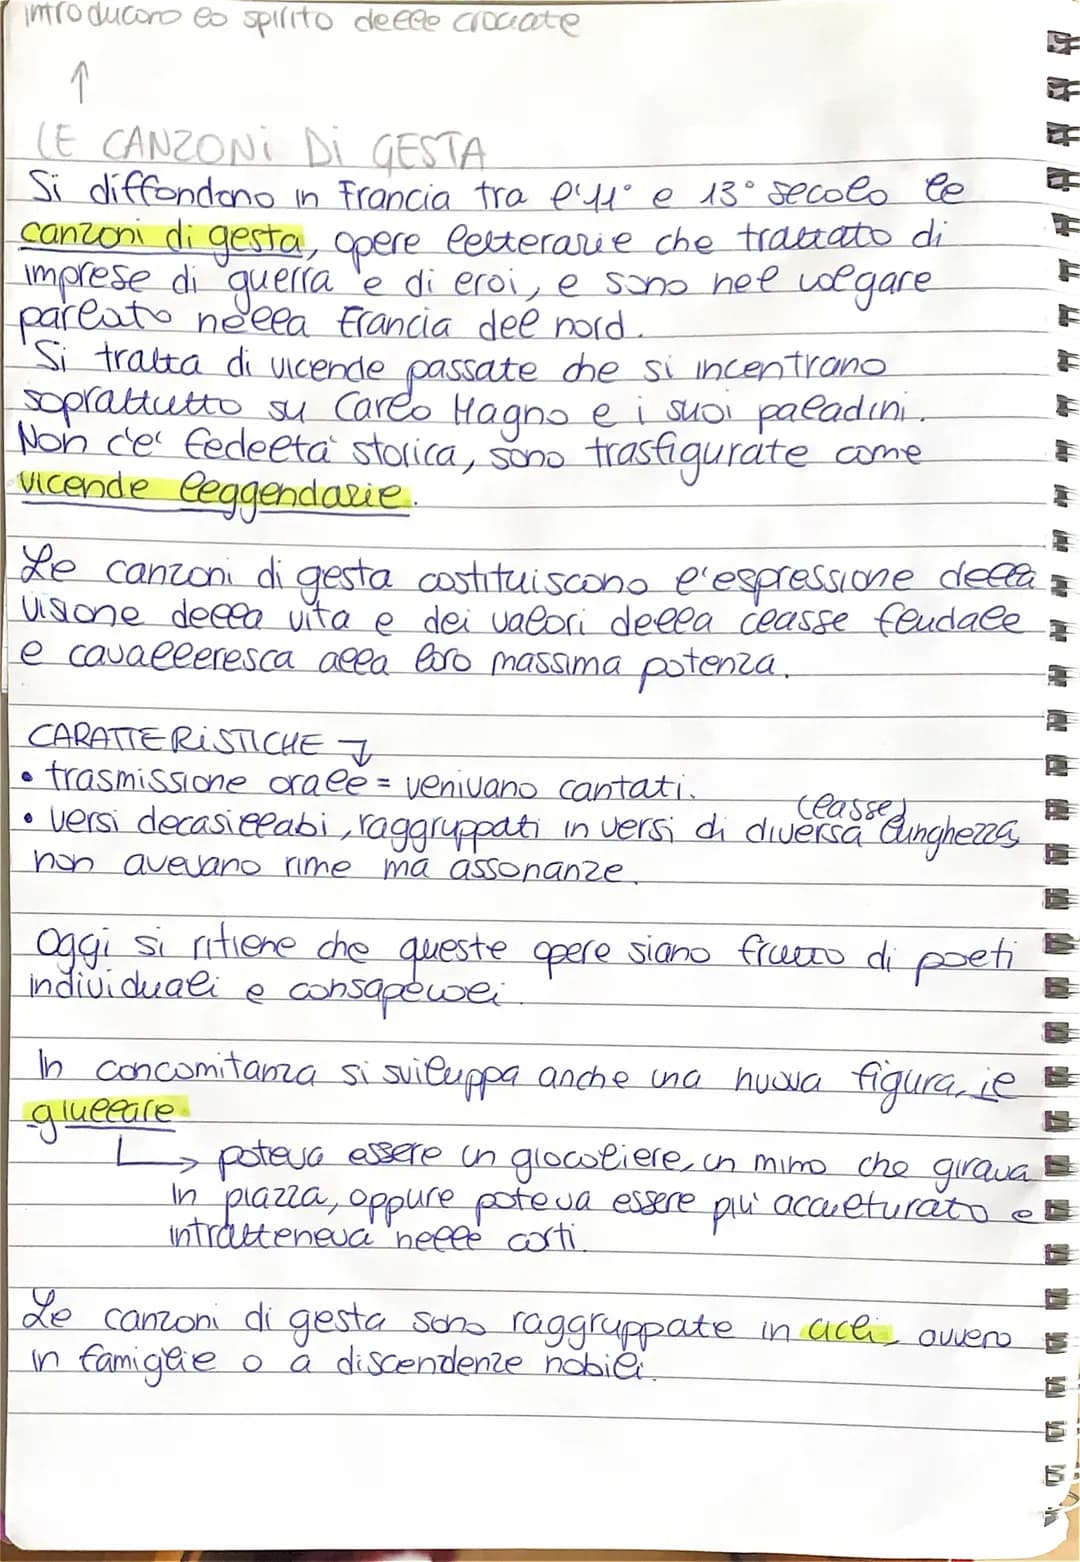 introducono lo spirito delle crociate
↑
LE CANZONI Di GESTA
Si diffondono in Francia tra l'11° e 13° secolo le
canzoni di gesta, opere letterarie che trattato di
imprese di guerra e di eroi, e sono nel volgare
parlato nella Francia del nord.
Si tratta di vicende passate che si incentrano
soprattutto su Carlo Magno e i suoi paladini.
Non c'è fedeltà storica, sono trasfigurate come
vicende leggendarie.
Le canzoni di gesta costituiscono l'espressione della
visione della vita e dei valori della classe feudale
e cavalleresca alla loro massima potenza.
CARATTERiSTICHE ↓
• trasmissione orale = venivano cantati.
(lasse)
• versi decasillabi, raggruppati in versi di diversa lunghezza,
non avevano rime ma assonanze.
Oggi si ritiene che queste opere siano frutto di poeti
individuali e consapevoli.
In concomitanza si sviluppa anche una nuova figura, il
giullare
↳ poteva essere un giocoliere, un mimo che girava
in piazza, oppure poteva essere più acculturato e
intratteneva nelle corti.
Le canzoni di gesta sono raggruppate in cicli, ovvero
in famiglie o a discendenze nobili.